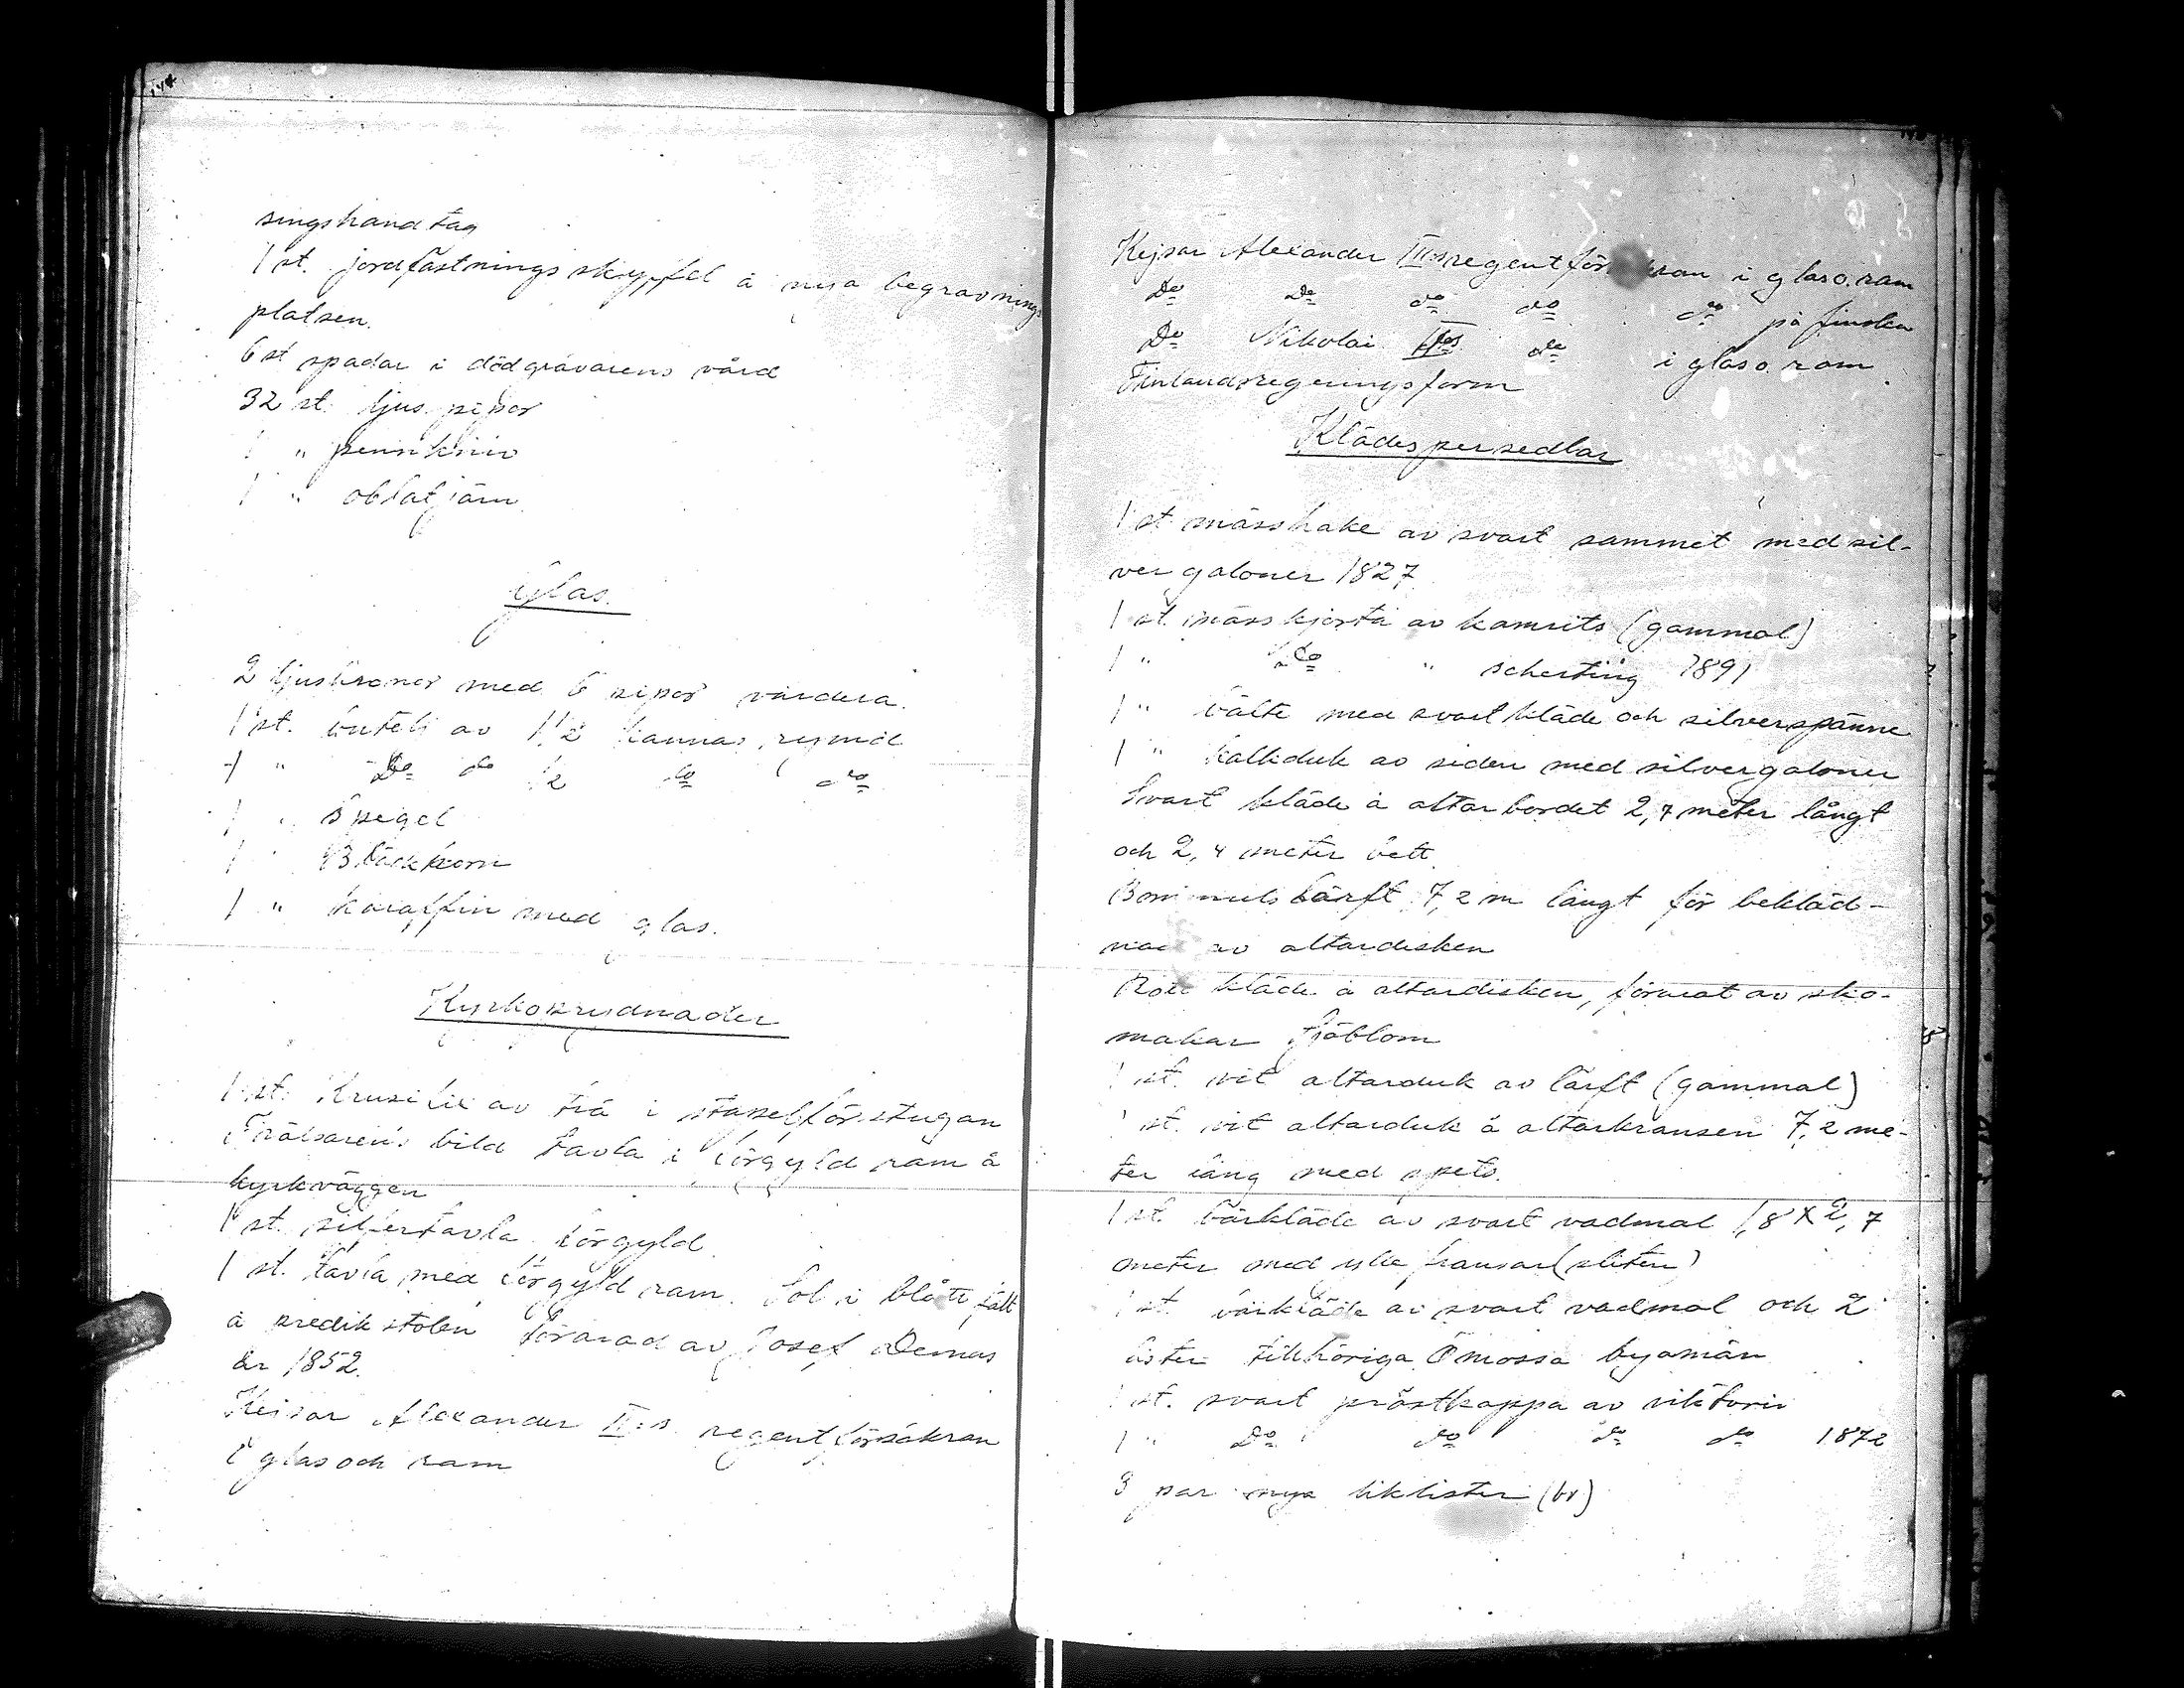 144
singshandtag
1 st. jordfästningsskyffel å nya begravnings
platsen.
6 st spadar i dödgrävarens vård
32 st. ljuspipor
1 " pennkniv
1 " oblatjärn
Glas.
2 ljuskronor med 6 pipor vardera.
1 st. butelj av 1 1/2 kannas rymd
1 " Do do 1/2 do do
1 " Spegel
1 " Bläckhorn
1 " karaffin med glas.
Kyrkoprydnader
1 st. Krusifix av trä i stapelförstugan
Frälsarens bild tavla i förgyld ram å
kyrkväggen
1 st. siffertavla förgyld
1 st. tavla med förgyld ram. Sol i blått fält
å predikstolen förärad av Josef
år 1852.
Kejsar Alexander II:s regentförsäkran
i glas och ram
Kejsar Alexander III:s regentförsäkran i glas o. ram
Do Do do do do på finska
Do Nikolai II:s do i glas o. ram
Finlands regeringsform
Klädespersedlar
1 st. mässhake av svart sammet med sil-
ver galoner 1827
1 st. mässkjorta av (gammal)
1 " Do " scherting 1891
1 " bälte med svart kläde och silverspänne
1 " kalkduk av siden med silvergaloner
Svart kläde å altarbordet 2,7 meter långt
och 2,4 meter brett
Bommulslärft 7,2 m långt för bekläd-
nad av altardisken
Rött kläde å altardisken, förärat av sko-
makar Sjöblom
1 st. vit altarduk av lärft (gammal)
1 st. vit altarduk å altarkransen 7,2 me-
ter lång med spets.
1 st. bårkläde av svart vadmal 1,8 X 2,7
meter med ylle fransar (sliten)
1 st. bårkläde av svart vadmal och 2
lister tillhöriga Ömossa byamän
1 st. svart prästkappa av
1 " Do do do do 1872
3 par nya liklister (br)